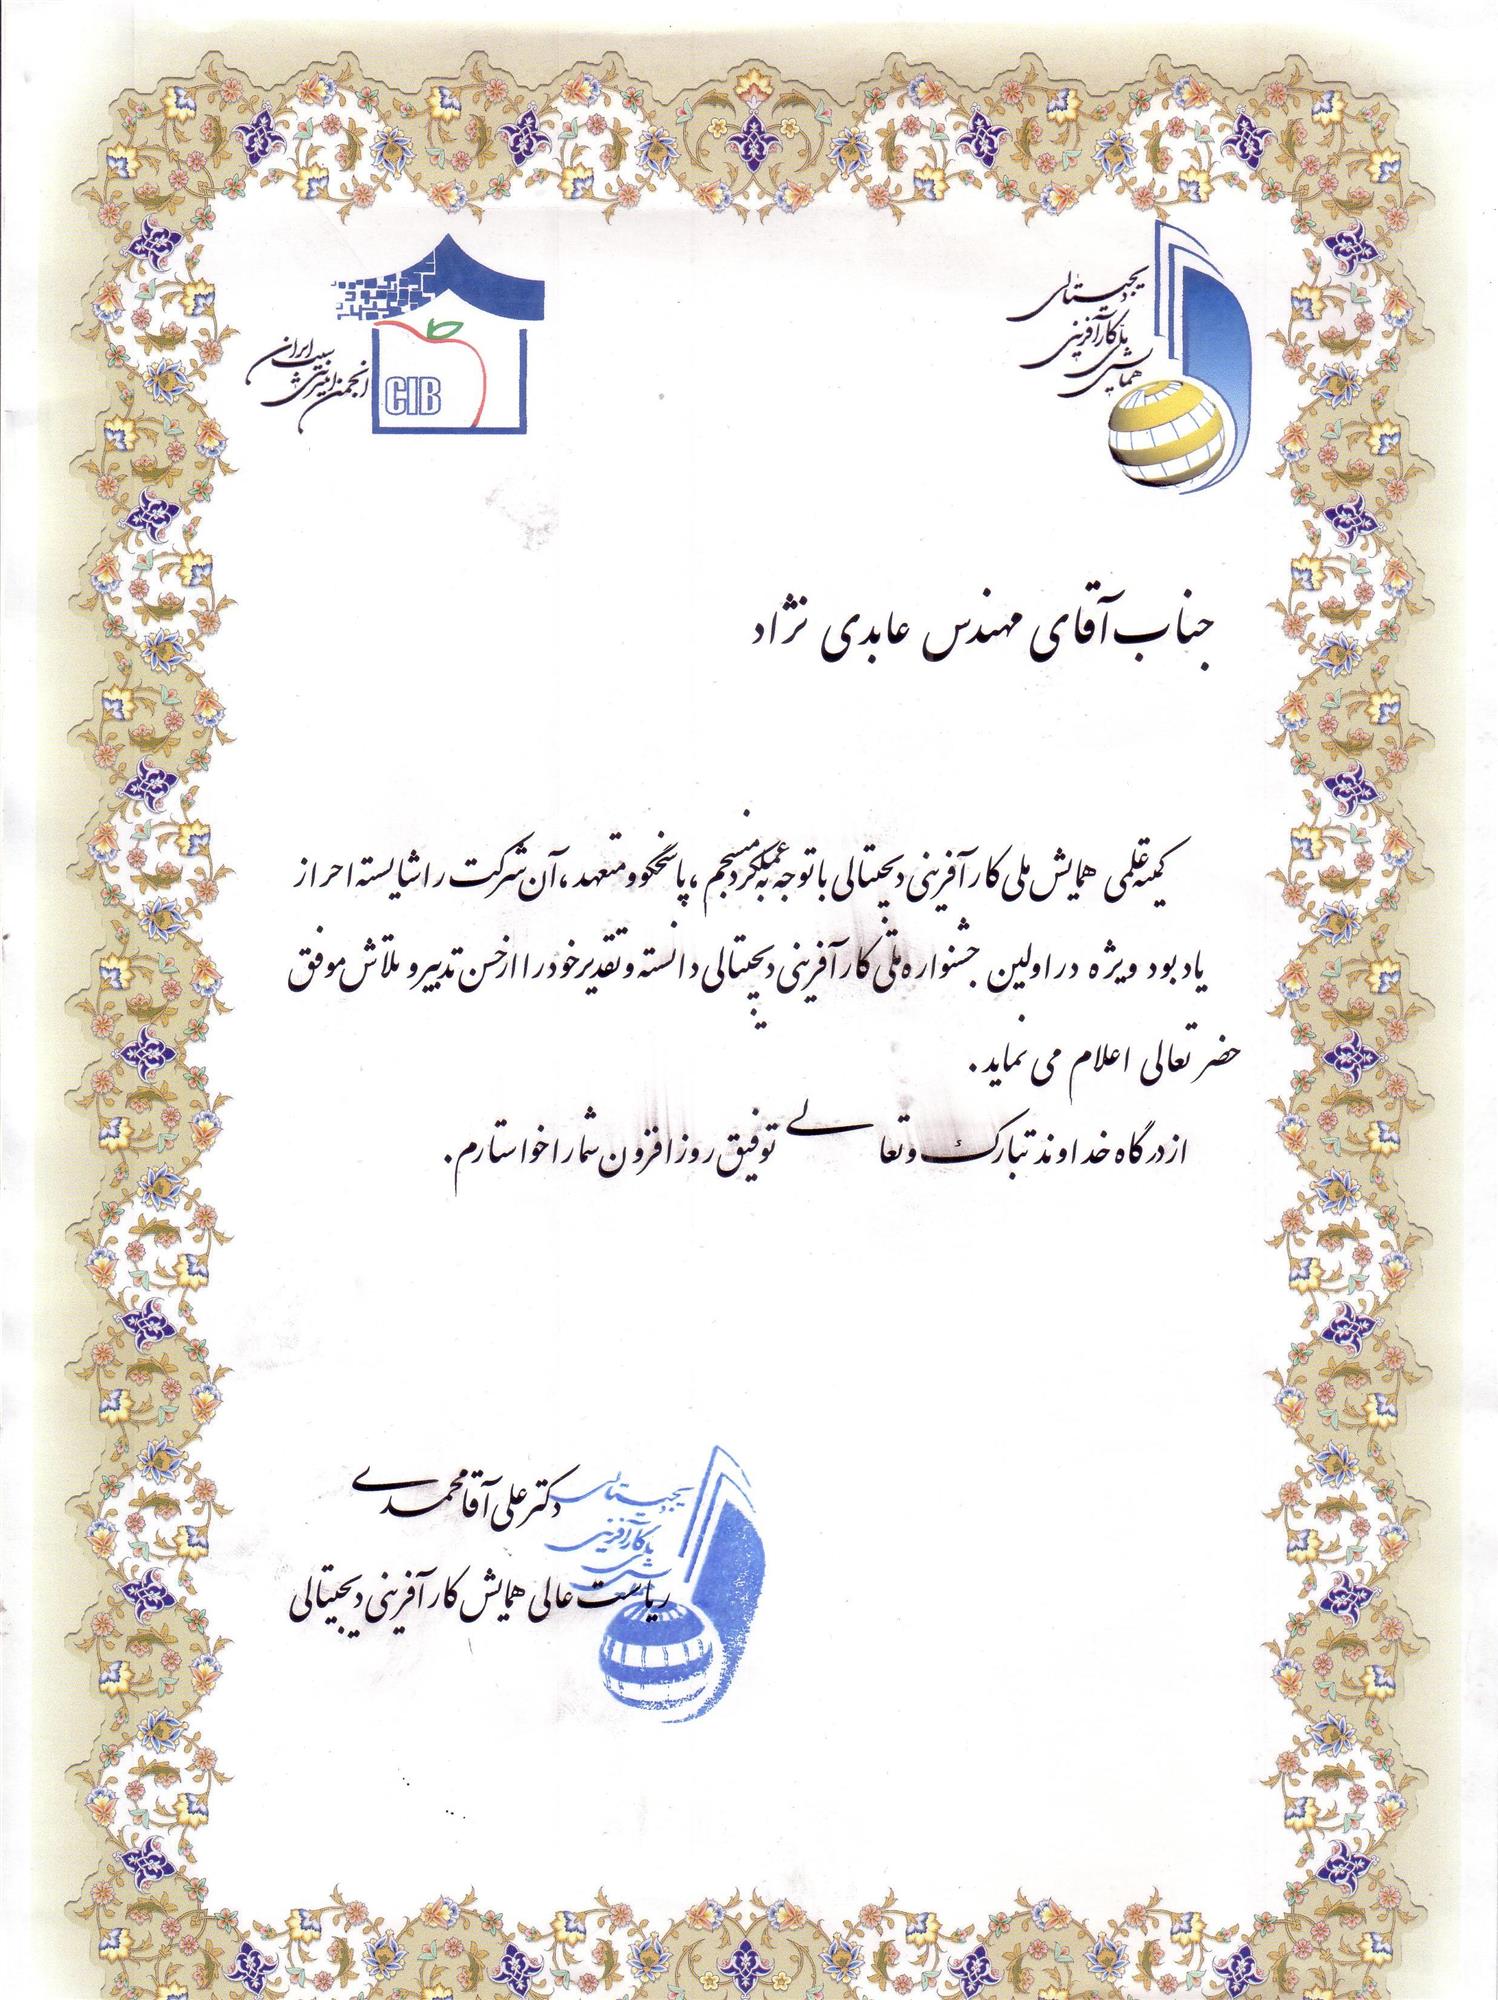 دیجیتالی
ملی کارآفرینی
همایش
انجمن اینترنتی سیب ایران
CIB
جناب آقای مهندس عابدی نژاد
کمیته علمی همایش ملی کارآفرینی دیجیتالی با توجه به عملکرد منسجم ، پاسخگو و متعهد ، آن شرکت را شایسته احراز
یادبود ویژه در اولین جشنواره ملی کارآفرینی دیجیتالی دانسته و تقدیر خود را از حسن تدبیر و تلاش موفق
حضرتعالی اعلام می نماید .
از درگاه خداوند تبارک و تعالی توفیق روزافزون شما را خواستارم .
دکتر علی آقامحمدی
ریاست عالی همایش کارآفرینی دیجیتالی
دیجیتالی
کارآفرینی